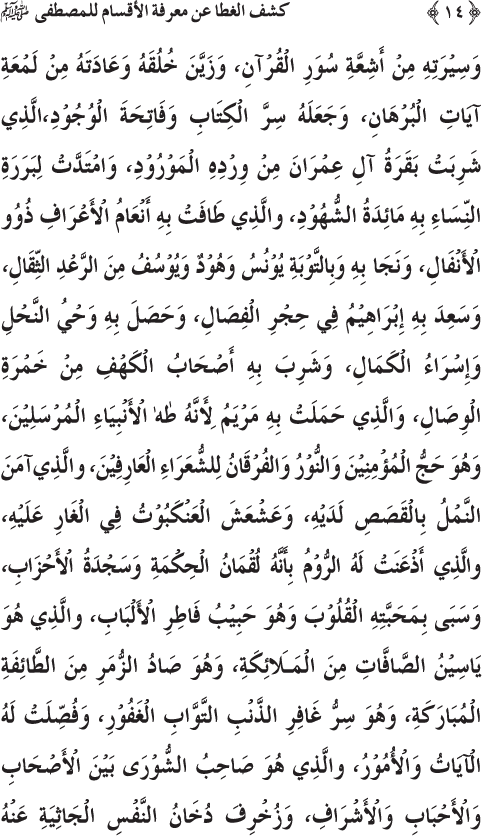 ﴿ ١٤ ﴾ كشف الغطا عن معرفة الأقسام للمصطفى ﷺ
وَسِيْرَتِهِ مِنْ أَشِعَّةِ سُوَرِ الْقُرْآنِ، وَزَيَّنَ خُلُقَهُ وَعَادَتَهُ مِنْ لَمْعَةِ
آيَاتِ الْبُرْهَانِ، وَجَعَلَهُ سِرَّ الْكِتَابِ وَفَاتِحَةَ الْوُجُوْدِ،الَّذِي
شَرِبَتْ بَقَرَةُ آلِ عِمْرَانَ مِنْ وِرْدِهِ الْمَوْرُوْدِ، وَامْتَدَّتْ لِبَرَرَةِ
النِّسَاءِ بِهِ مَائِدَةُ الشُّهُوْدِ، والَّذِي طَافَتْ بِهِ أَنْعَامُ الْأَعْرَافِ ذُوُو
الْأَنْفَالِ، وَنَجَا بِهِ وَبِالتَّوْبَةِ يُوْنُسُ وَهُوْدٌ وَيُوْسُفُ مِنَ الرَّعْدِ الثِّقَالِ،
وَسَعِدَ بِهِ إِبْرَاهِيْمُ فِي حِجْرِ الْفِصَالِ، وَحَصَلَ بِهِ وَحْيُ النَّحْلِ
وَإِسْرَاءُ الْكَمَالِ، وَشَرِبَ بِهِ أَصْحَابُ الْكَهْفِ مِنْ خَمْرَةِ
الْوِصَالِ، وَالَّذِي حَمَلَتْ بِهِ مَرْيَمُ لِأَنَّهُ طٰهٰ الْأَنْبِيَاءِ الْمُرْسَلِيْنَ،
وَهُوَ حَجُّ الْمُؤْمِنِيْنَ وَالنُّوْرُ وَالْفُرْقَانُ لِلشُّعَرَاءِ الْعَارِفِيْنَ، والَّذِي آمَنَ
النَّمْلُ بِالْقَصَصِ لَدَيْهِ، وَعَشْعَشَ الْعَنْكَبُوْتُ فِي الْغَارِ عَلَيْهِ،
والَّذِي أَذْعَنَتْ لَهُ الرُّوْمُ بِأَنَّهُ لُقْمَانُ الْحِكْمَةِ وَسَجْدَةُ الْأَحْزَابِ،
وَسَبَى بِمَحَبَّتِهِ الْقُلُوْبَ وَهُوَ حَبِيْبُ فَاطِرِ الْأَلْبَابِ، والَّذِي هُوَ
يَاسِيْنُ الصَّافَّاتِ مِنَ الْمَلَائِكَةِ، وَهُوَ صَادُ الزُّمَرِ مِنَ الطَّائِفَةِ
الْمُبَارَكَةِ، وَهُوَ سِرُّ غَافِرِ الذَّنْبِ التَّوَّابِ الْغَفُوْرِ، وَفُصِّلَتْ لَهُ
الْآيَاتُ وَالْأُمُوْرُ، والَّذِي هُوَ صَاحِبُ الشُّوْرَى بَيْنَ الْأَصْحَابِ
وَالْأَحْبَابِ وَالْأَشْرَافِ، وَزُخْرِفَ دُخَانُ النَّفْسِ الْجَاثِيَةِ عَنْهُ